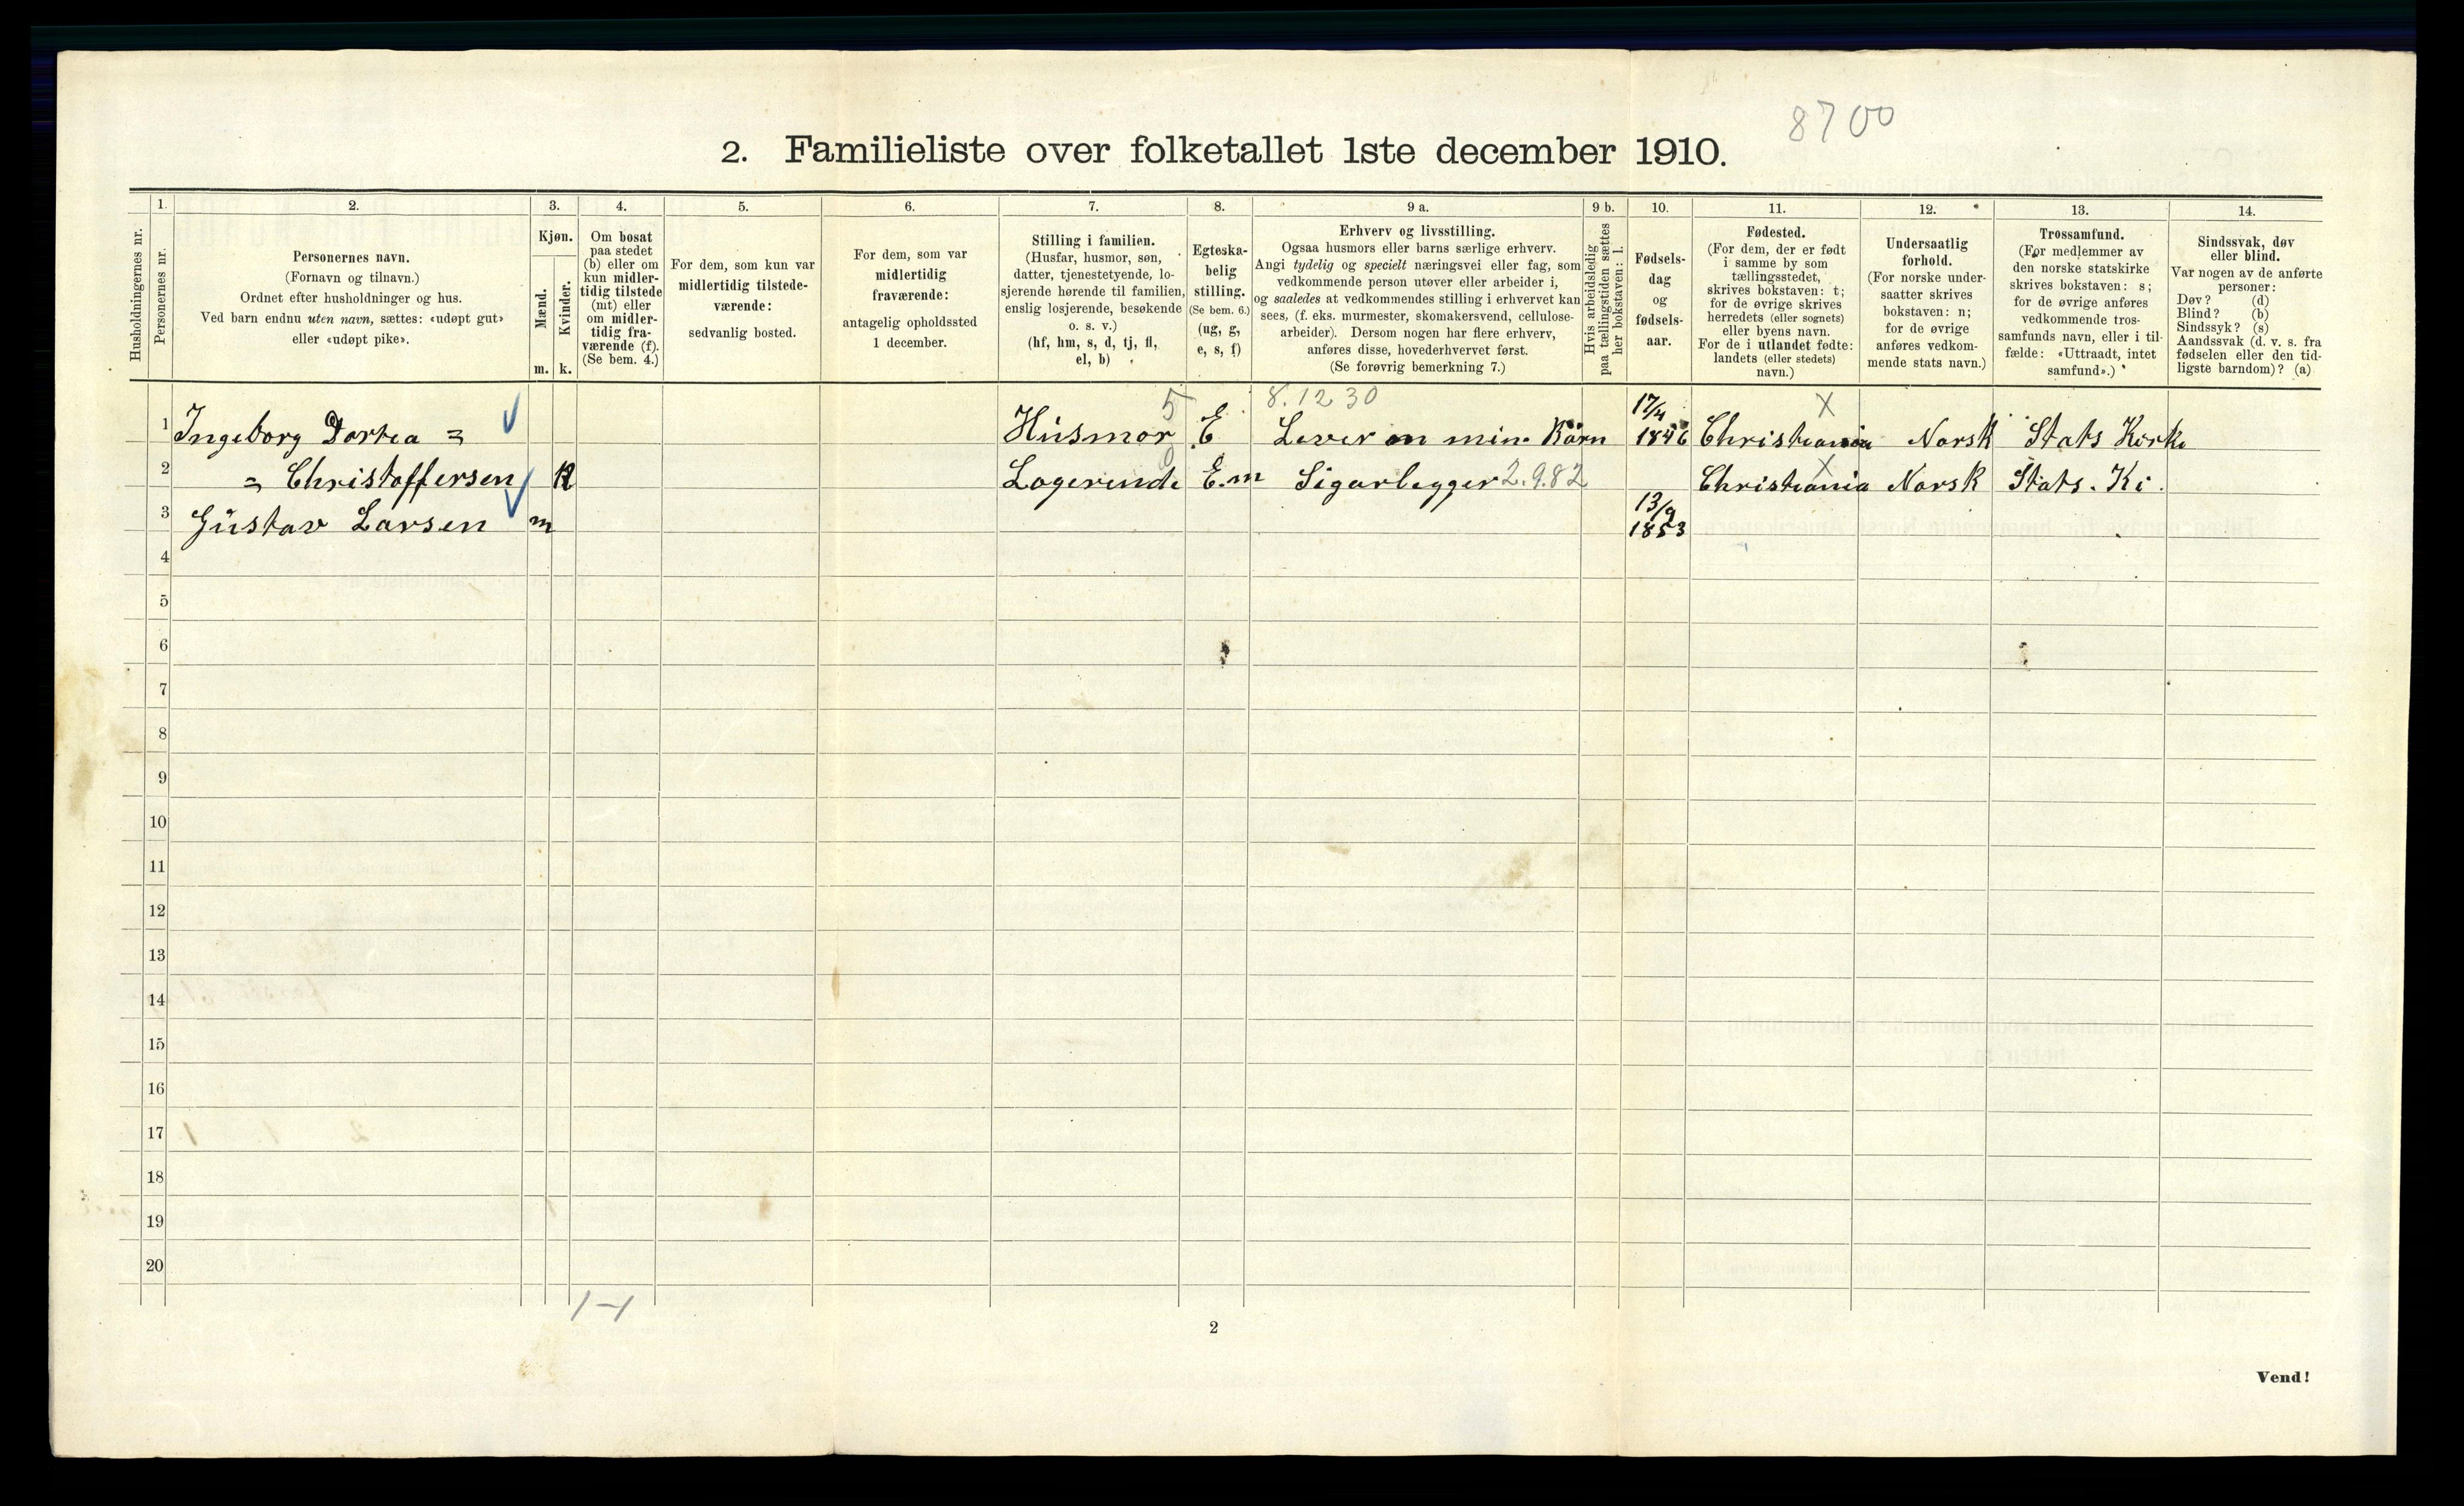 8700
2. Familieliste over folketallet 1ste december 1910.
Husholdningernes nr.
1.
Personernes nr.
2.
Personernes navn.
(Fornavn og tilnavn.)
Ordnet efter husholdninger og hus.
Ved barn endnu uten navn, sættes: «udøpt gut»
eller «udøpt pike».
3.
Kjøn.
Mænd.
Kvinder.
m. k.
4.
Om bosat
paa stedet
(b) eller om
kun midler-
tidig tilstede
(mt) eller
om midler-
tidig fra-
værende (f).
(Se bem. 4.)
5.
For dem, som kun var
midlertidig tilstede-
værende:
sedvanlig bosted.
6.
For dem, som var
midlertidig
fraværende:
antagelig opholdssted
1 december.
7.
Stilling i familien.
(Husfar, husmor, søn,
datter, tjenestetyende, lo-
sjerende hørende til familien,
enslig losjerende, besøkende
o. s. v.)
(hf, hm, s, d, tj, fl,
el, b)
8.
Egteska-
belig
stilling.
(Se bem. 6.)
(ug, g,
e, s, f)
9 a.
Erhverv og livsstilling.
Ogsaa husmors eller barns særlige erhverv.
Angi tydelig og specielt næringsvei eller fag, som
vedkommende person utøver eller arbeider i,
og saaledes at vedkommendes stilling i erhvervet kan
sees, (f. eks. murmester, skomakersvend, cellulose-
arbeider). Dersom nogen har flere erhverv,
anføres disse, hovederhvervet først.
(Se forøvrig bemerkning 7.)
9 b.
Hvis arbeidsledig
paa tællingstiden sættes
her bokstaven: l.
10.
Fødsels-
dag
og
fødsels-
aar.
11.
Fødested.
(For dem, der er født
i samme by som
tællingsstedet,
skrives bokstaven: t;
for de øvrige skrives
herredets (eller sognets)
eller byens navn.
For de i utlandet fødte:
landets (eller stedets)
navn.)
12.
Undersaatlig
forhold.
(For norske under-
saatter skrives
bokstaven: n;
for de øvrige
anføres vedkom-
mende stats navn.)
13.
Trossamfund.
(For medlemmer av
den norske statskirke
skrives bokstaven: s;
for de øvrige anføres
vedkommende tros-
samfunds navn, eller i til-
fælde: «Uttraadt, intet
samfund».)
14.
Sindssvak, døv
eller blind.
Var nogen av de anførte
personer:
Døv? (d)
Blind? (b)
Sindssyk? (s)
Aandssvak (d. v. s. fra
fødselen eller den tid-
ligste barndom)? (a)
5 8.12 30 17/4 X
1 Ingeborg Dortea = Husmor E Lever m min Børn 1846 Christiania Norsk Stats Kirke
2 = Christoffersen K Logerende E.m Sigarlegger 2.9.82 X Christiania Norsk Stats. Ki.
3 Gustav Larsen m 13/9 1853
4
5
6
7
8
9
10
11
12
13
14
15
16
17
18
19
20
1-1
2
Vend!